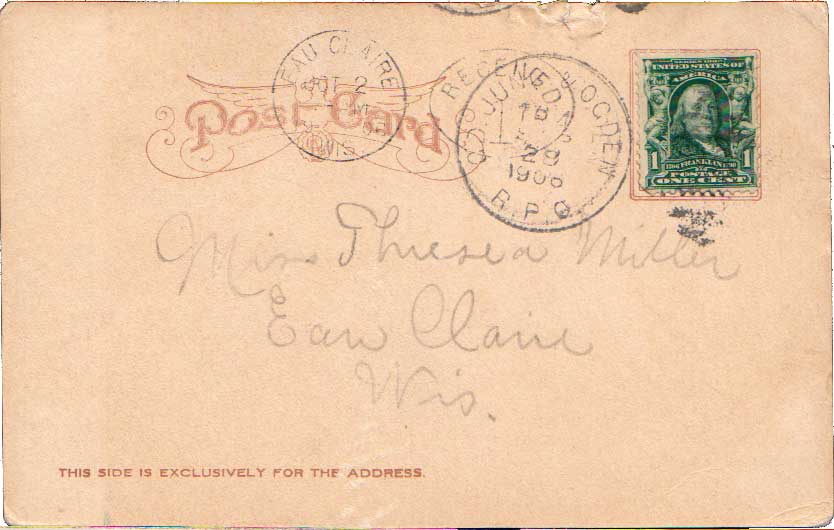 EAU CLAIRE
OCT 2
WIS.
Post Card
RECEIVED
OGDEN
JUN
29
1906
R.P.O.
SERIES 1902
UNITED STATES OF
AMERICA
1 FRANKLIN 1
POSTAGE
ONE CENT
Miss Theresa Miller
Eau Claire
Wis.
THIS SIDE IS EXCLUSIVELY FOR THE ADDRESS.